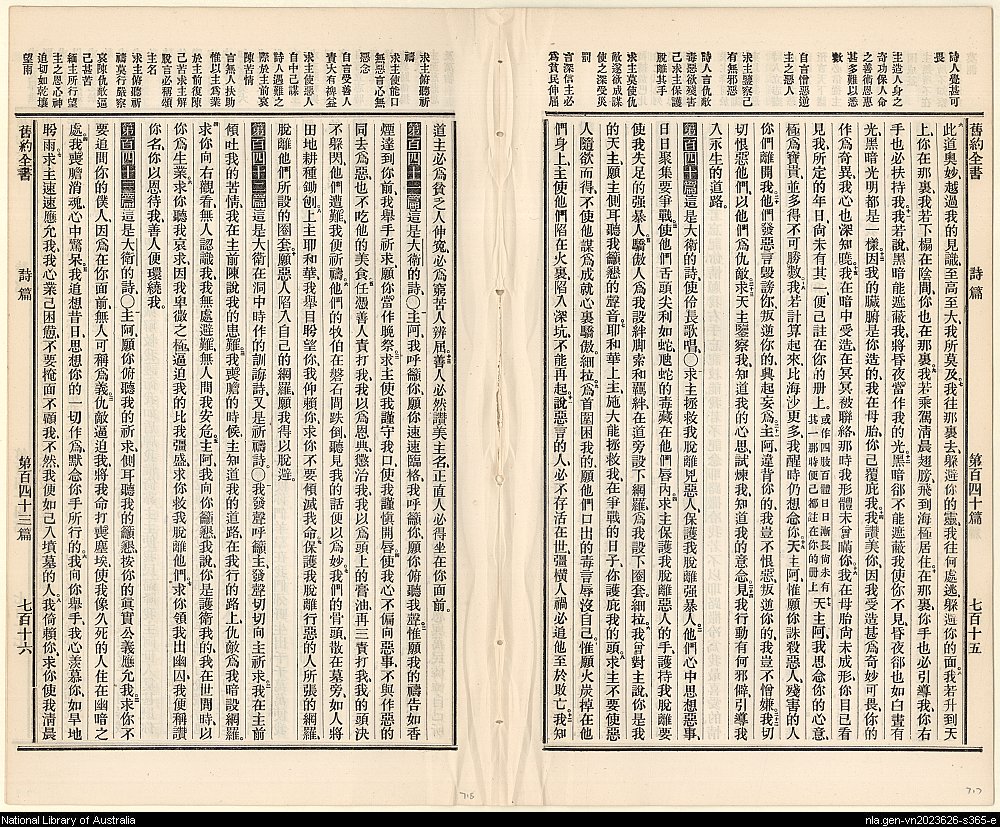 詩人覺甚可
畏
主造人身之
奇功保人命
之善術恩惠
甚多難以悉
數
自言憎惡逆
主之惡人
求主鑒察己
有無邪惡
詩人言仇敵
毒惡欲殘害
己求主保護
脫離其手
求主莫使仇
敵遂欲成謀
使之深受災
罰
言深信主必
爲貧民伸屈
舊約全書
詩篇
第百四十篇
七百十五
此道奧妙越過我的見識至高至大我所莫及我往那裏去躲避你的靈我往何處逃躲避你的面我若升到天
上你在那裏我若下榻在陰間你也在那裏我若乘駕清晨翅膀飛到海極居住在那裏你手也必引導我你右
手也必扶持我我若說黑暗能遮蔽我將昏夜當作我的光黑暗卻不能遮蔽我使你不見昏夜卻也如白晝有
光黑暗光明都是一樣因我的臟腑是你造的我在母胎你已覆庇我我讚美你因我受造甚爲奇妙可畏你的
作爲奇異我心也深知曉我在暗中受造在冥冥被聯絡那時我形體未曾瞞你我在母胎尚未成形你目已看
見我所定的年日尚未有其一便已註在你的册上或作四肢百體日日漸長尚未有其一那時便已都註在你的册上天主阿我思念你的心意
極爲寶貴並多得不可勝數我若計算起來比海沙更多我醒時仍想念你天主阿惟願你誅殺惡人殘害的人
你們離開我他們發惡言毀謗你叛逆你的興起妄爲主阿違背你的我豈不恨惡叛逆你的我豈不憎嫌我切
切恨惡他們以他們爲仇敵求天主鑒察我知道我的心思試煉我知道我的意念見我行動有何邪僻引導我
入永生的道路
第百四十篇這是大衛的詩使伶長歌唱○求主拯救我脫離兇惡人保護我脫離強暴人他們心中思想惡事
日日聚集要爭戰他們使他們舌頭尖利如蛇虺蛇的毒藏在他們唇內求主保護我脫離惡人的手護持我脫離要
使我失足的強暴人驕傲人爲我設絆脚索和羈絆在道旁設下網羅爲我設下圈套細拉我曾對主說你是我
的天主願主側耳聽我籲懇的聲音耶和華上主施大能拯救我在爭戰的日子你護庇我的頭求主不要使惡
人隨欲而得不使他謀爲成就心裏驕傲細拉爲首圍困我的願他們口出的毒言辱沒自己惟願火炭掉在他
們身上主使他們陷在火裏陷入深坑不能再起說惡言的人必不存活在世彊橫人禍必追他至於敗亡我知
求主俯聽祈
禱
求主使能口
無惡言心無
惡念
自言受善人
責大有裨益
求主使惡人
自中己謀
詩人遇難之
際於主前哀
陳苦情
言無人扶助
惟以主爲業
於主前復陳
己苦求主解
脫言必稱頌
主名
求主俯聽祈
禱莫行嚴察
哀陳仇敵逼
己甚苦
緬主所行望
主之恩心神
迫切如乾壤
望雨
道主必爲貧乏人伸冤必爲窮苦人辨屈善人必然讚美主名正直人必得坐在你面前
第百四十一篇這是大衛的詩○主阿我呼籲你願你速速臨格我呼籲你願你俯聽我聲惟願我的禱告如香
煙達到你前我舉手祈求願你當作晚祭求主使我謹守我口使我謹愼開唇使我心不偏向惡事不與作惡的
同去爲惡也不吃他的美食任憑善人責打我我以爲恩典懲治我我以爲頭上的膏油再三責打我我的頭決
不躱閃他們遭難我便祈禱他們的牧伯在磐石間跌倒聽見我的話便以爲妙我們的骨頭散在墓旁如人將
田地耕種鋤刨上主耶和華我舉目盼望你我仰賴你求你不要傾滅我命保護我脫離行惡的人所張的網羅
脫離他們所設的圈套願惡人陷入自己的網羅願我得以脫避
第百四十二篇這是大衛在洞中時作的訓誨詩又是祈禱詩○我發聲呼籲主發聲切切向主祈求我在主前
傾吐我的苦情我在主前陳說我的患難我喪膽的時候主知道我的道路在我行的路上仇敵爲我暗設網羅
求你向右觀看無人認識我我無處避難無人間我安危主阿我向你籲懇我說你是護衛我的我在世間時以
你爲生業求你聽我哀求因我卑微之極逼迫我的比我彊盛求你救我脫離他們求你領我出幽囚我便稱讚
你名你以恩待我善人便環繞我
第百四十三篇這是大衛的詩○主阿願你俯聽我的祈求側耳聽我的籲懇按你的眞實公義應允我求你不
要追問你的僕人因爲在你面前無人可稱爲義仇敵逼迫我將我命打喪塵埃使我像久死的人住在幽暗之
處我喪膽消魂心中驚呆我追想昔日思想你的一切作爲默念你手所行的我向你舉手我心羨慕你如旱地
盼雨求主速速應允我我心業已困憊不要掩面不顧我不然我便如已入墳墓的人我倚賴你求你使我清晨
舊約全書
詩篇
第百四十三篇
七百十六
716
717
National Library of Australia
nla.gen-vn2023626-s365-e